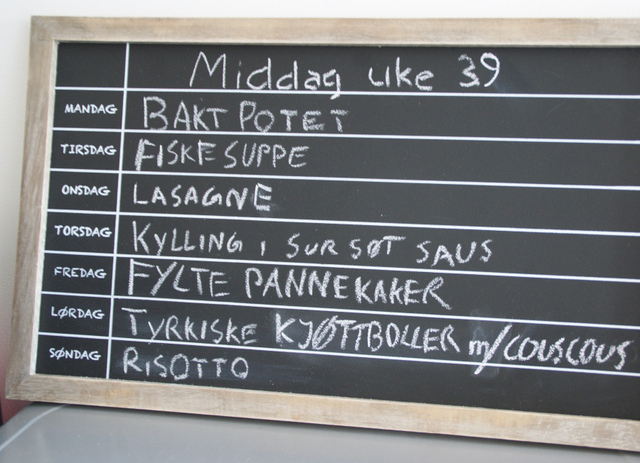 Middag uke 39
MANDAG BAKT POTET
TIRSDAG FISKESUPPE
ONSDAG LASAGNE
TORSDAG KYLLING I SUR SØT SAUS
FREDAG FYLTE PANNEKAKER
LØRDAG TYRKISKE KJØTTBOLLER m/COUSCOUS
SØNDAG RISOTTO